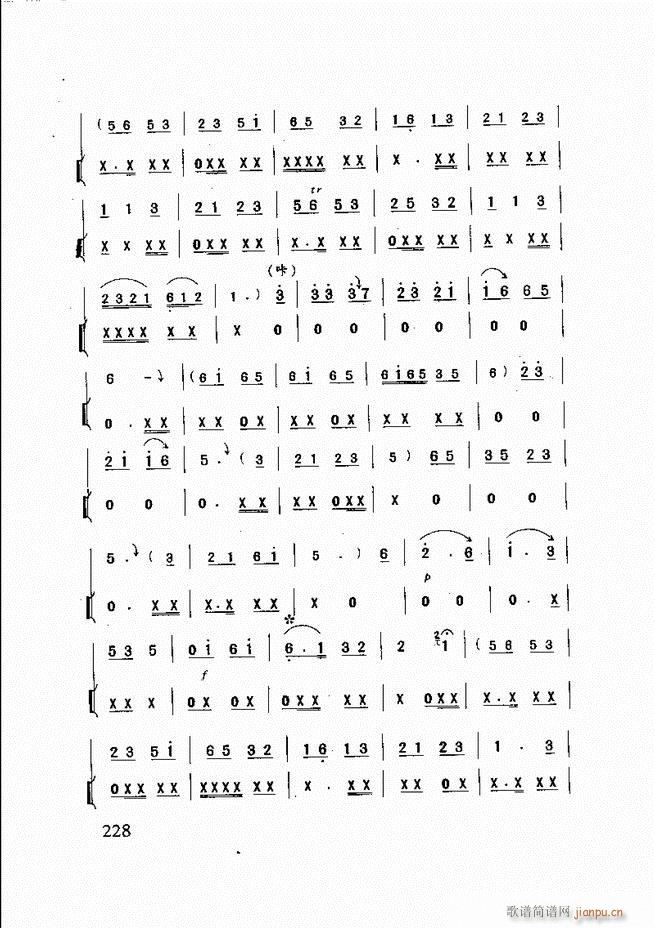 (56 53 | 23 5i | 65 32 | 16 13 | 21 23 |
X.X XX | 0XX XX | XXXX XX | X . XX | XX XX |
tr
1 1 3 | 21 23 | 56 53 | 25 32 | 1 1 3 |
X X XX | 0XX XX | X.X XX | 0XX XX | X X XX |
(咔)
2321 612 | 1.) 3 | 33 37 | 23 21 | i6 65 |
XXXX X X | X 0 | 0 0 | 0 0 | 0 0 |
6 - | (6i 65 | 6i 65 | 6i65 35 | 6) 23 |
0. XX | XX 0X | XX 0X | XX XX | 0 0 |
2i i6 | 5. (3 | 21 23 | 5) 65 | 35 23 |
0 0 | 0. XX | XX 0XX | X 0 | 0 0 |
5. (3 | 21 6i | 5 . ) 6 | 2 . 6 | i . 3 |
p
0. XX | X.X XX | X 0 | 0 0 | 0. X |
53 5 | 0i 6i | 6.1 32 | 2 1 | (56 53 |
f
XX X | 0X 0X | 0XX XX | X 0XX | X.X XX |
23 5i | 65 32 | 16 13 | 21 23 | 1 . 3 |
0XX XX | XXXX XX | X . XX | XX 0X | X.X XX |
228
歌谱简谱网 jianpu.cn